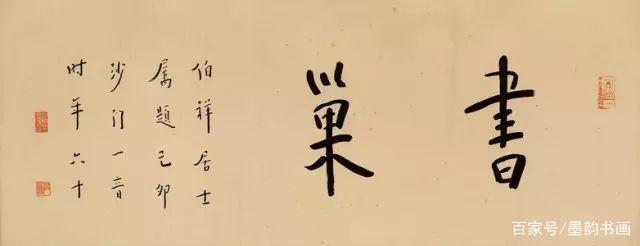 書巢
伯祥居士
属题己卯
沙门一音
时年六十
百家号/墨韵书画